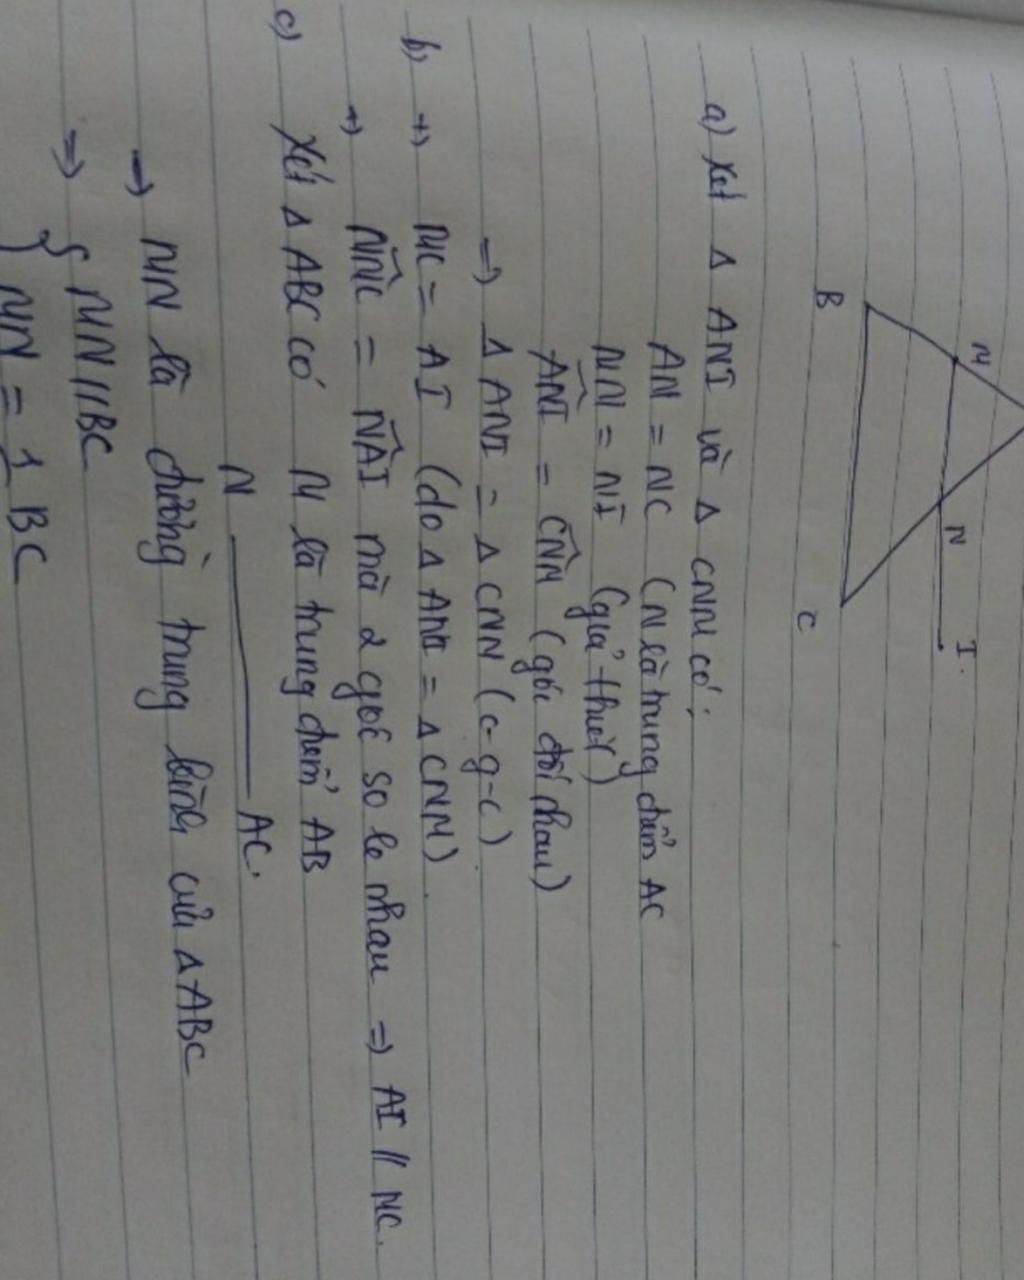 M
N
I.
B
C
a) Xét Δ ANI và Δ CNM có:
AN = NC (N là trung điểm AC
MN = NI (giả thuết)
ANI = CNM (góc đối nhau)
=> Δ ANI = Δ CNM (c-g-c).
b) +) MC = AI (do Δ ANI = Δ CNM).
+) MNC = NAI mà 2 góc so le nhau => AI // MC.
c) Xét Δ ABC có M là trung điểm AB
N ——— AC.
→ MN là đường trung bình của Δ ABC
=> { MN // BC
MN = 1 BC